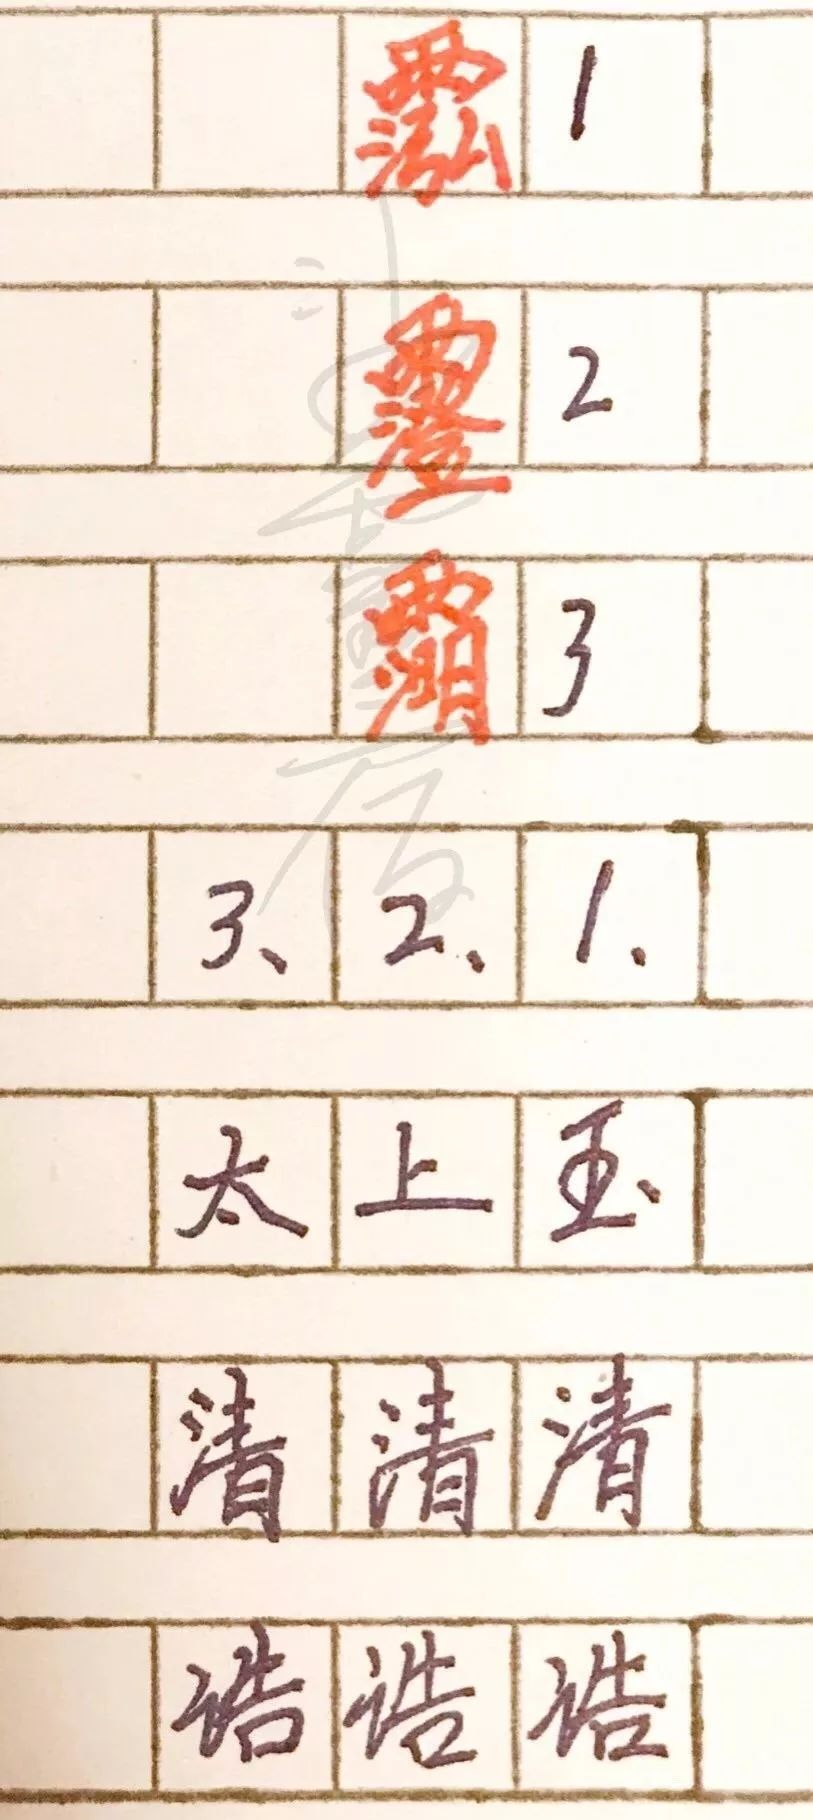 1
2
3
1、玉清诰
2、上清诰
3、太清诰